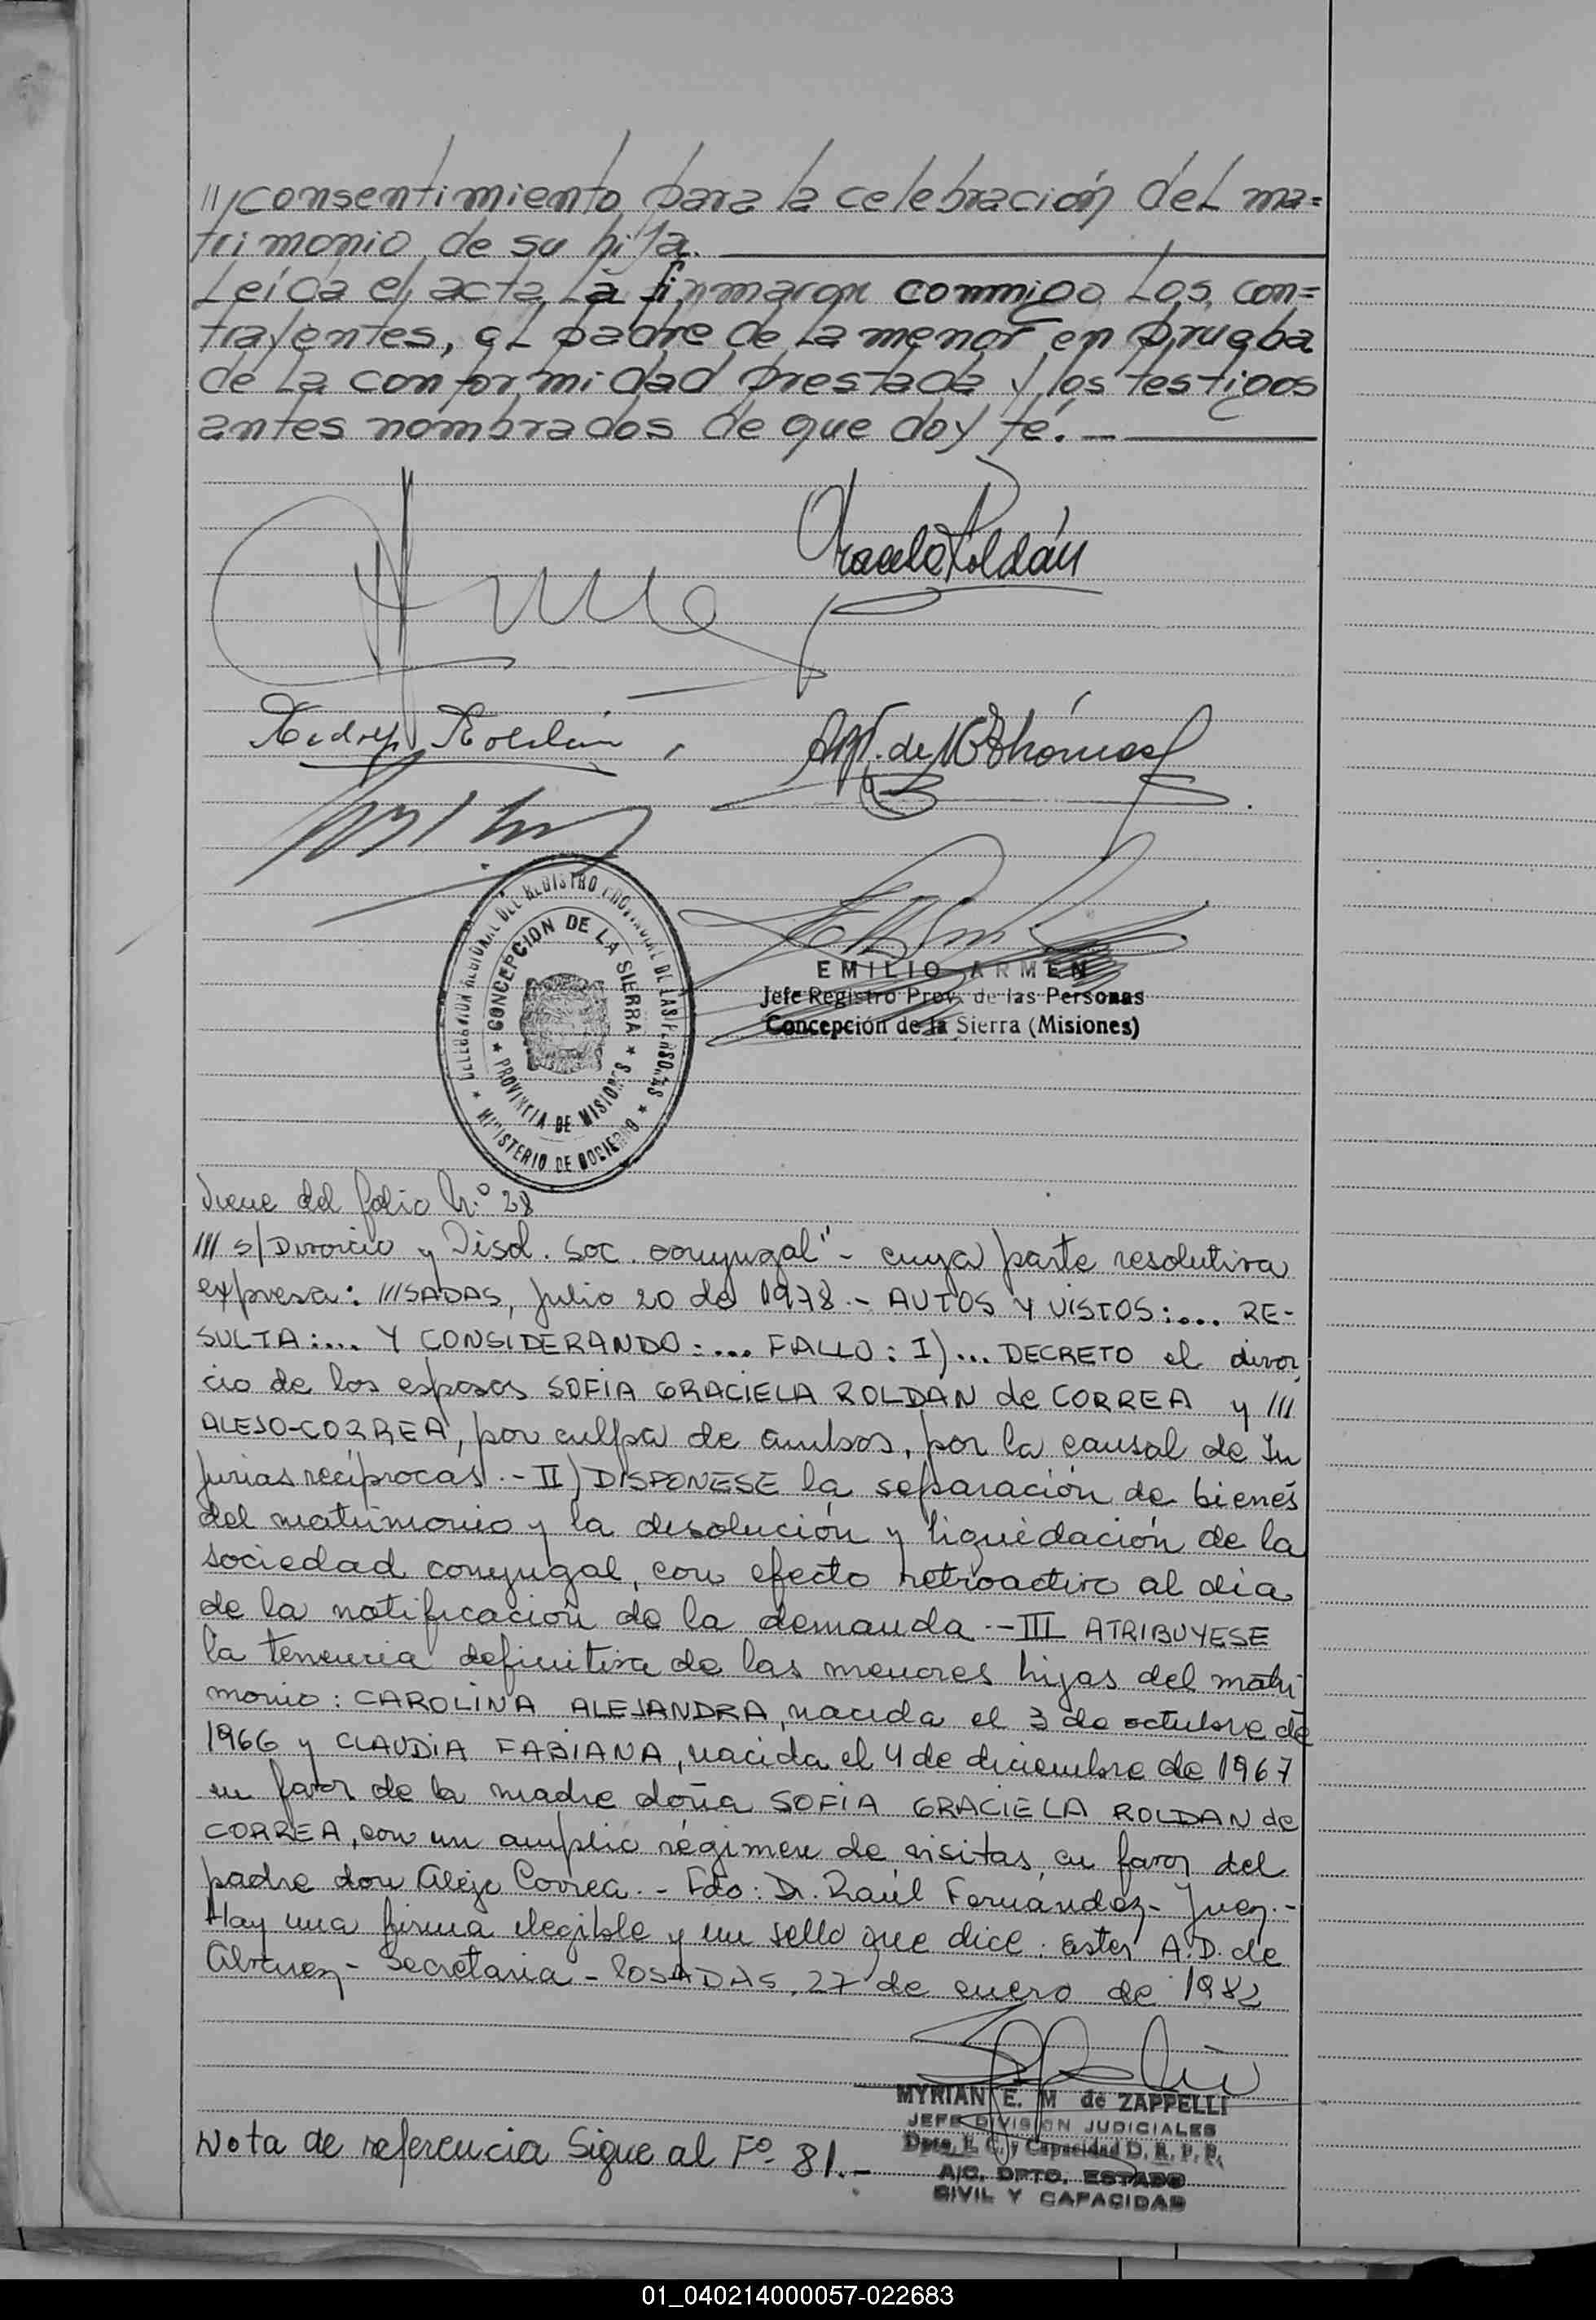 // consentimiento para la celebración del ma=
trimonio de su hija.
Leída el acta la firmaron conmigo los con=
trayentes, el padre de la menor en prueba
de la conformidad prestada y los testigos
antes nombrados de que doy fé. —
Roldán
Roldán
de Thómas
DELEGACION REGIONAL DEL REGISTRO PROVINCIAL DE LAS PERSONAS
CONCEPCION DE LA SIERRA
PROVINCIA DE MISIONES
MINISTERIO DE GOBIERNO
EMILIO ARMEN
Jefe Registro Prov. de las Personas
Concepción de la Sierra (Misiones)
Viene del folio N.º 28
/// s/Divorcio y Disol. Soc. conyugal" - cuya parte resolutiva
expresa: ///SADAS, Julio 20 de 1978.- AUTOS Y VISTOS:.... RE-
SULTA:.... Y CONSIDERANDO:... FALLO: I)... DECRETO el divor
cio de los esposos SOFIA GRACIELA ROLDAN de CORREA y ///
ALEJO-CORREA, por culpa de ambos, por la causal de In
jurias recíprocas.- II) DISPONESE la separación de bienes
del matrimonio y la disolución y liquidación de la
sociedad conyugal, con efecto retroactivo al día
de la notificación de la demanda.- III ATRIBUYESE
la tenencia definitiva de las menores hijas del matri
monio: CAROLINA ALEJANDRA, nacida el 3 de octubre de
1966 y CLAUDIA FABIANA, nacida el 4 de diciembre de 1967
en favor de la madre doña SOFIA GRACIELA ROLDAN de
CORREA, con un amplio régimen de visitas en favor del
padre don Alejo Correa.- Fdo: Dr. Raúl Fernández - Juez.-
Hay una firma ilegible y un sello que dice: Ester A.D. de
Alvarez - Secretaria - POSADAS, 27 de enero de 1982
MYRIAN E. M de ZAPPELLI
JEFE DIVISION JUDICIALES
Dpto. E. C. y Capacidad D. R. P. P.
A/C. DPTO. ESTADO
CIVIL Y CAPACIDAD
Nota de referencia Sigue al Fº 81.-
01_040214000057-022683